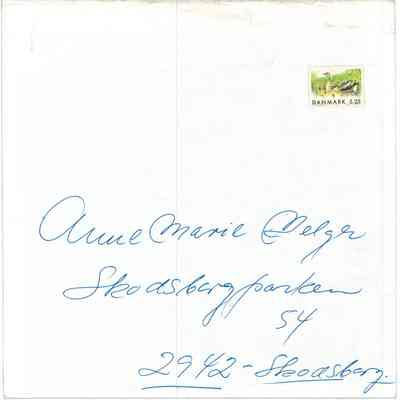 DANMARK 5.25
Anne Marie Melger
Skodsborgparken
54
2942-Skodsborg.